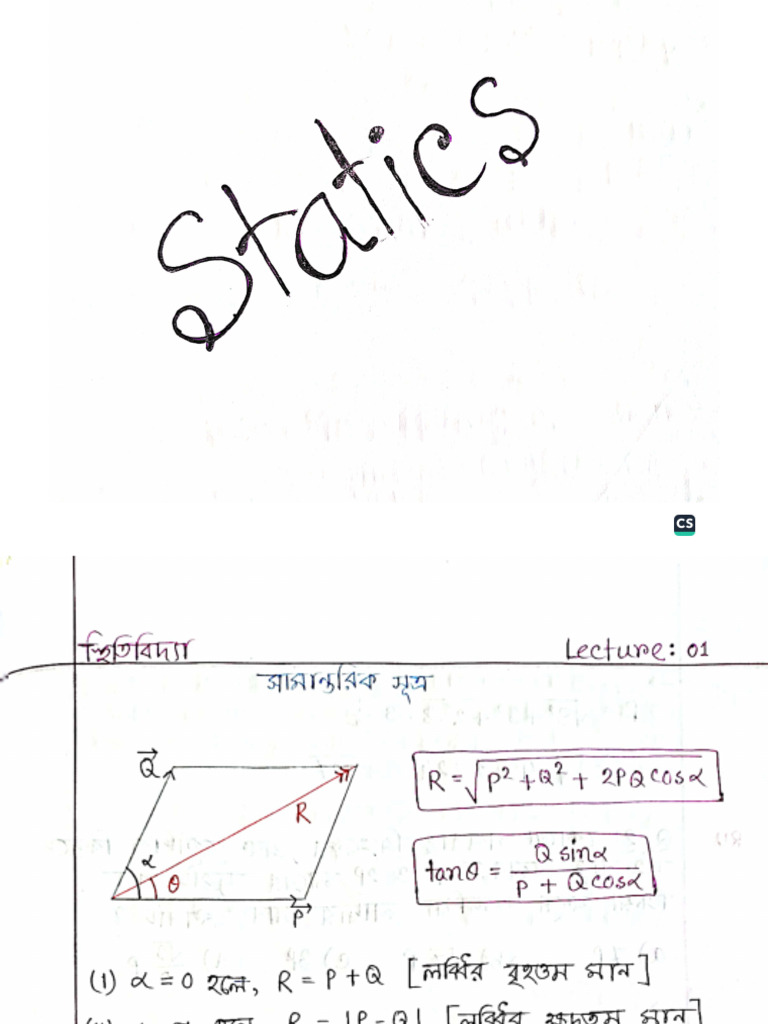 Statics
CS
স্থিতিবিদ্যা Lecture: 01
সামান্তরিক সূত্র
Q R = √P² + Q² + 2PQ cosα
R
α θ tanθ = Q sinα / P + Q cosα
P
(i) α = 0 হলে, R = P + Q [লব্ধির বৃহত্তম মান]
R = |P - Q| [লব্ধির ক্ষুদ্রতম মান]